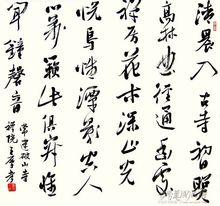 清晨入古寺初日照
高林曲径通幽處
禅房花木深山光
悦鳥性潭影空人
心萬籁此俱寂惟
闻鐘磬音
常建破山寺
禅院